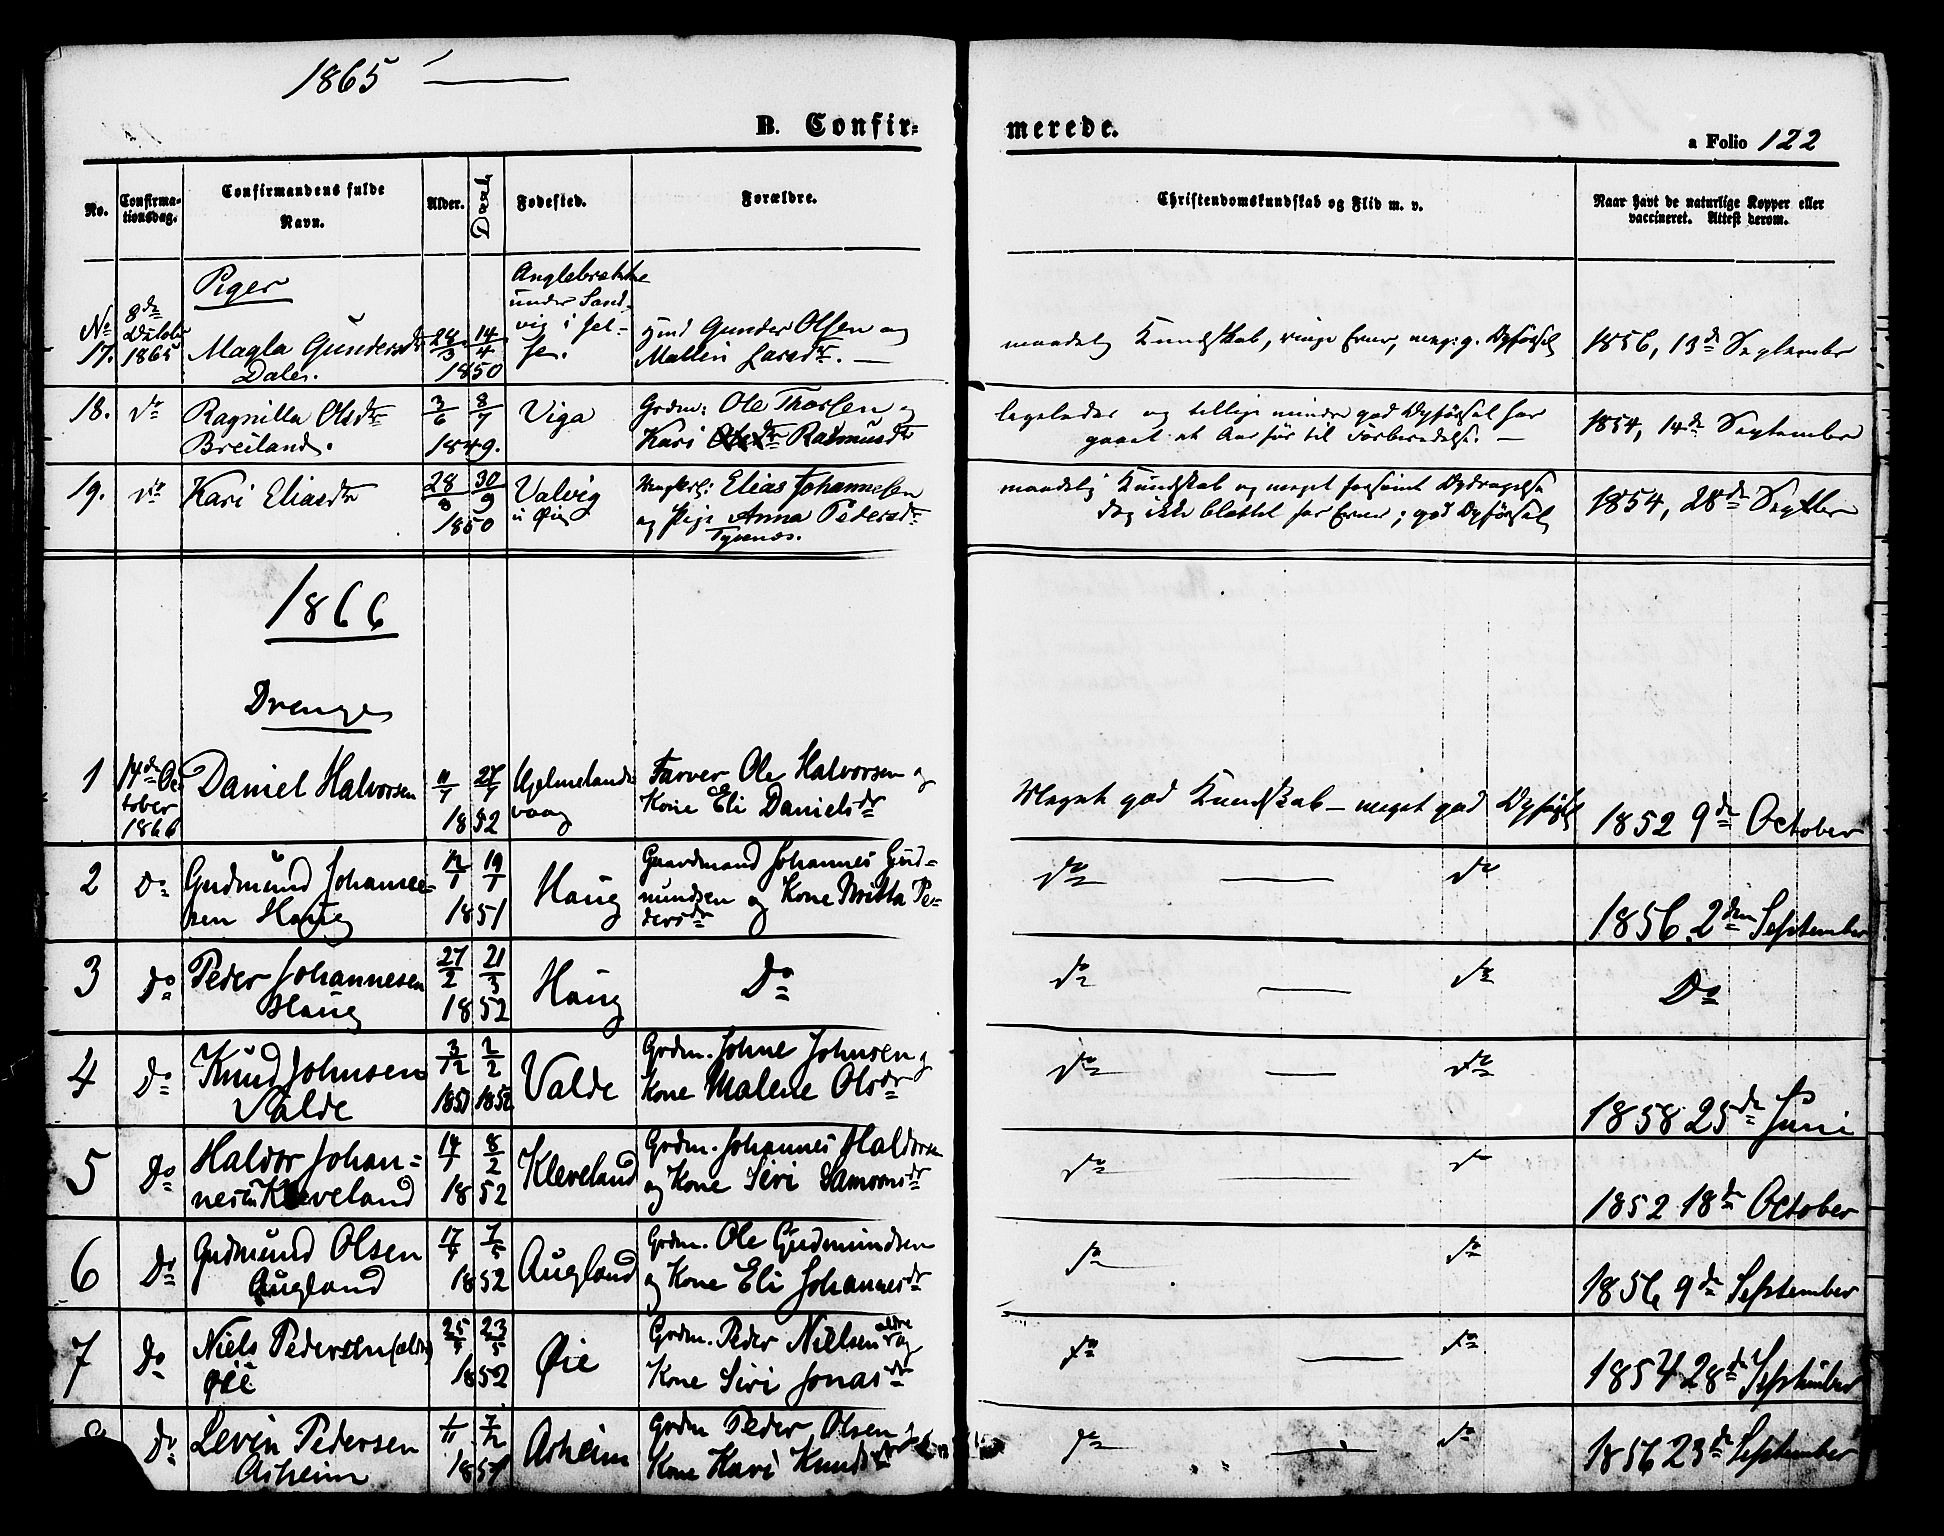 1865 —
B. Confir-
merede.
a Folio 122
No.
Confirma-
tionsdag.
Confirmandens fulde
Navn.
Alder.
Daab
Fødested.
Forældre.
Christendomskundskab og Flid m. v.
Naar havt de naturlige Kopper eller
vaccineret. Attest derom.
Piger
No 17. 8de October 1865 Magla Gundersdr Dale. 24/3 14/4 1850 under Sandvig i Jelse. Gunder Olsen og Mallin Larsdr. —
maadelig Kundskab, ringe Evner, meg. g. Opførsel
1856, 13de September
18. Do Ragnilla Olsdr Breiland. 3/6 8/7 1849. Viga Grdm: Ole Thorsen og Kari Rasmusdr
ligeledes og tillige mindre god Opførsel har
gaaet et Aar før til Forberedelse. —
1854, 14de September
19. Do Kari Eliasdr 28/8 30/9 1850 Valvig i Øie Elias Johannesen og Pige Anna Pedersdr
maadelig Kundskab og meget forsømt Opdragelse
dog ikke blottet for Evner; god Opførsel
1854, 28de Septbr
1866
Drenge
1 14de October 1866 Daniel Halvorsen 11/7 27/7 1852 Hjelmelandsvaag Farver Ole Halvorsen og Kone Eli Danielsdr
Meget god Kundskab — meget god Opførsel
1852 9de October
2 Do Gudmund Johannessen Haug 12/1 19/1 1851 Haug Gaardmand Johannes Gudmundsen og Kone Britta Pedersdr
do — do
1856 2den September
3 Do Peder Johannesen Haug 27/2 21/3 1852 Haug Do
do — do
Do
4 Do Knud Johnsen Valde 3/12 1851 2/2 1852 Valde Grdm. Johne Johnsen og Kone Malene Olsdr
do — do
1858 25de Juni
5 Do Haldor Johannesen Kleveland 14/1 8/2 1852 Kleveland Grdm. Johannes Haldorsen og Kone Siri Samsonsdr
do — do
1852 18de October
6 Do Gudmund Olsen Augland 17/4 7/5 1852 Augland Grdm. Ole Gudmundsen og Kone Eli Johannesdr
do do
1856 9de September
7 Do Niels Pedersen (ældre) Øie 25/4 23/5 1852 Øie Grdm. Peder Nielsen ældre og Kone Siri Jonasdr
do — do
1854 28de September
8 Do Levin Pedersen Asheim 1/11 7/12 1851 Asheim Grdm Peder Olsen og Kone Kari Knudsdr
do — do
1856 23de September